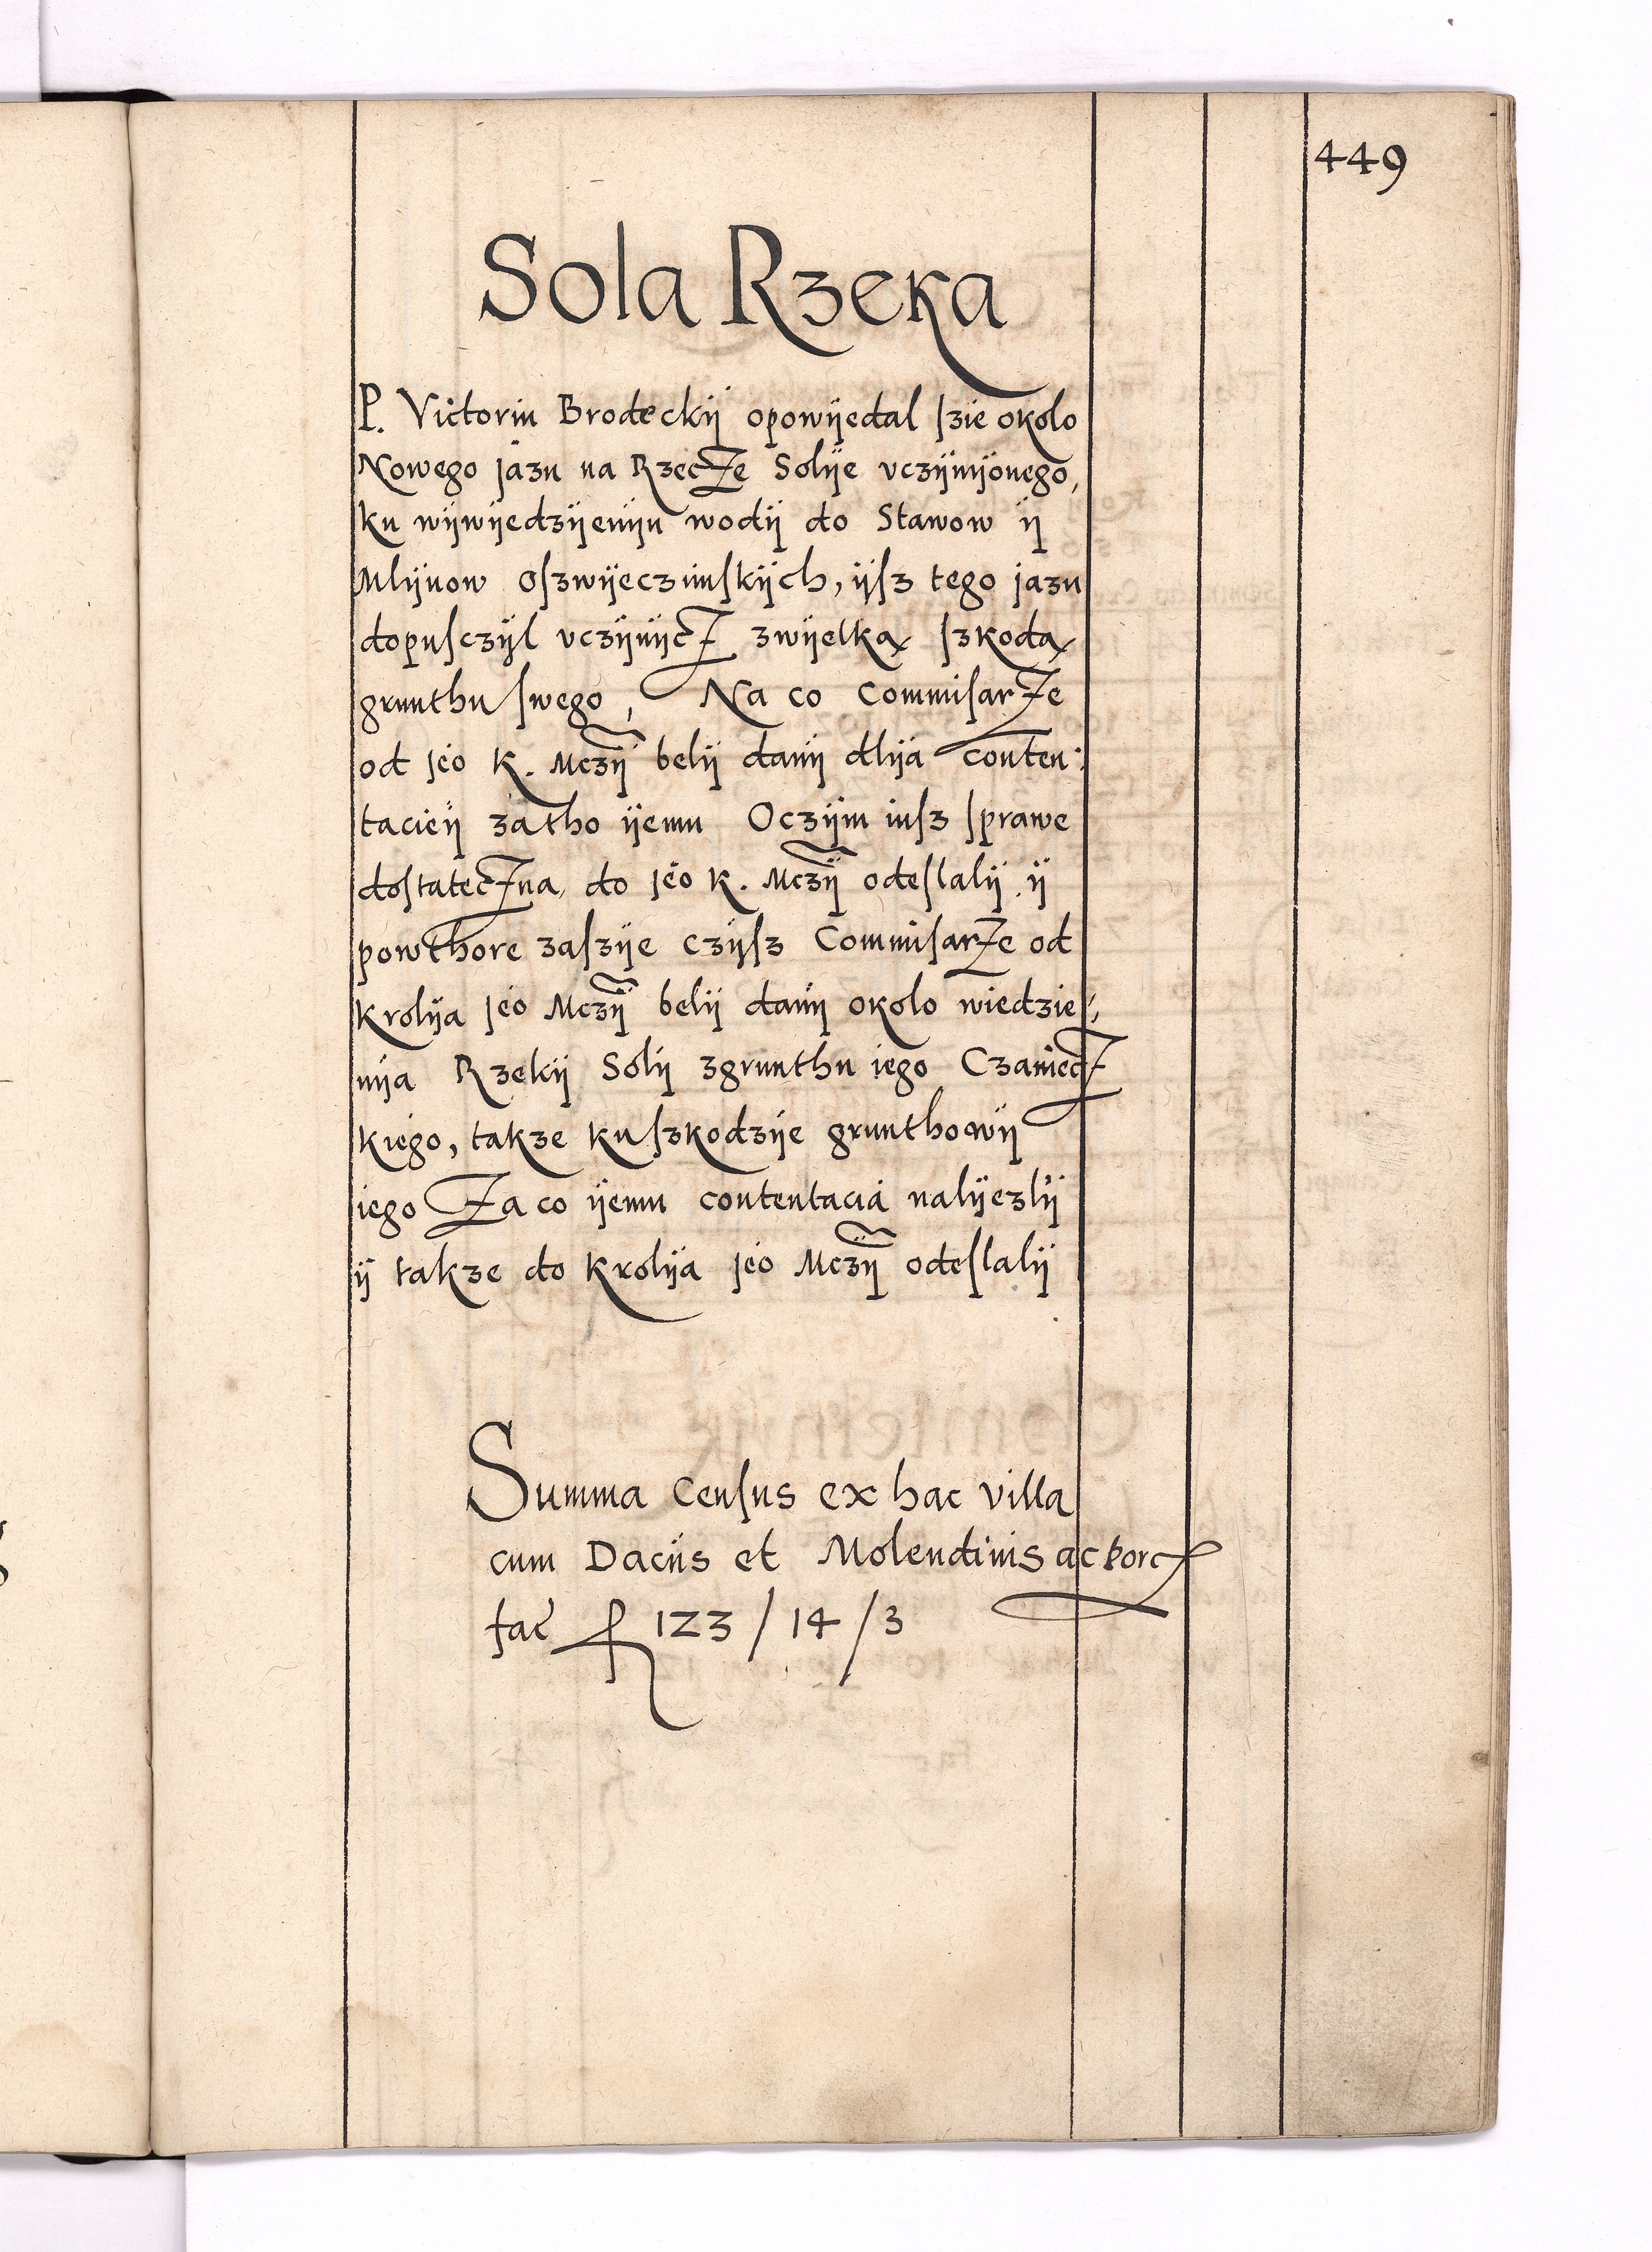 449
Sola Rzeka
P. Victorin Brodeckij opowijedal ſzie około
Nowego jazu na Rzecze Solije vczijnijonego,
ku wijwijedzijeniju wodij do Stawow ij
Mlijnow Oſzwijeczimſkijch, ijſz tego jazu
dopuſczijl vczijnijcz zwijelką ſzkodą
grunthu ſwego, Na co Commiſarze
od jeo K. Mczij belij danij dlija conten:
tacieij zatho ijemu Oczijm iuſz ſprawe
doſtateczną do jeo K. Mczij odeſlalij ij
powthore zaſzije czijſz Commiſarze od
Krolija jeo Mczij belij danij około wiedzie:
nija Rzekij Solij zgrunthu iego Czaniecz
kiego, takze kuſzkodzije grunthowij
iego Za co ijemu contentacia nalijezlij
ij takze do Krolija jeo Mczij odeſlalij
Summa Cenſus ex hac villa
cum Daciis et Molendinis ac porc
fac fl 123 / 14 / 3